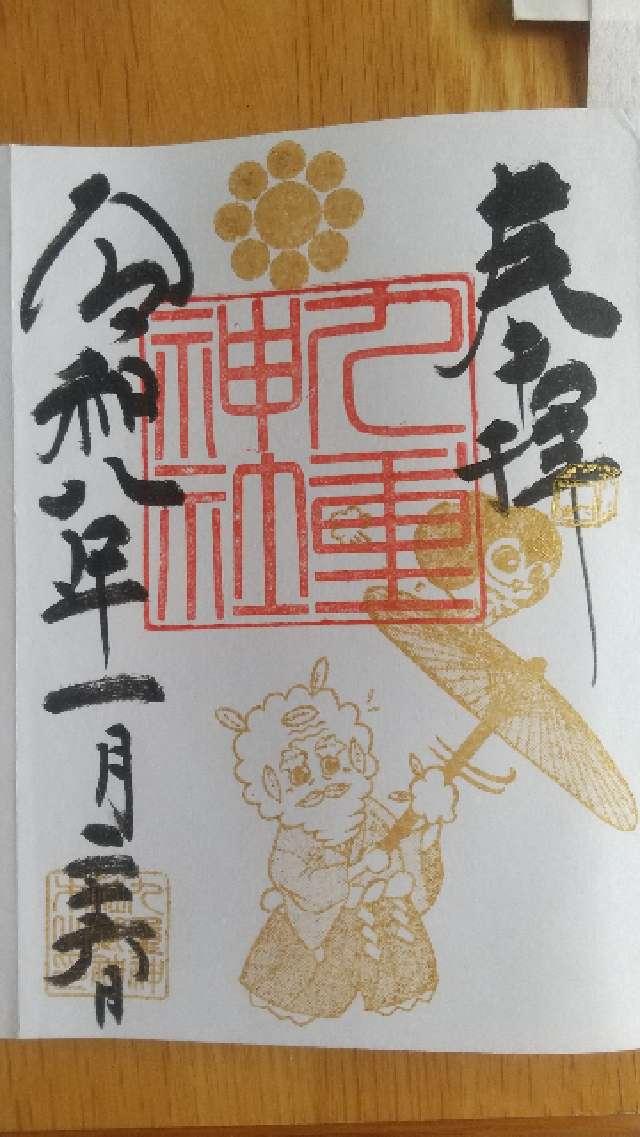 奉拝
九重
神社
令和八年一月二十六日